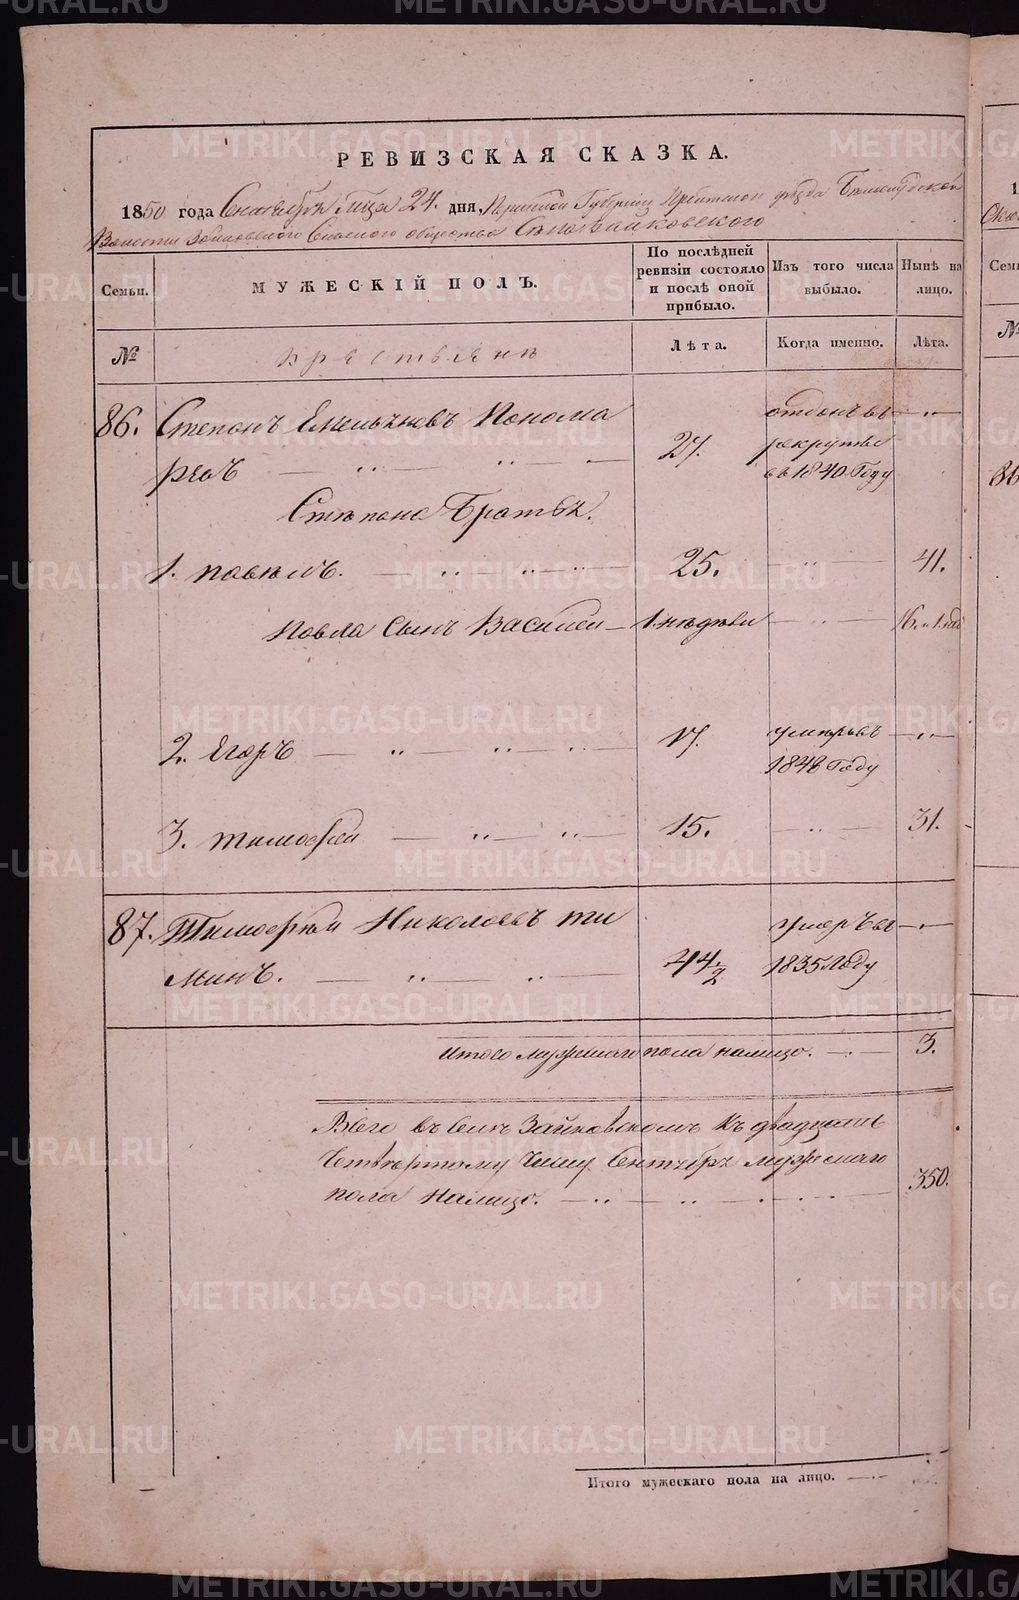 РЕВИЗСКАЯ СКАЗКА.
1850 года Сентября м-ца 24. дня, Пермской Губернии Ирбитского уезда
Волости Зайковского Сельского общества Села Зайковского
Семьи.
МУЖЕСКІЙ ПОЛЪ.
По послѣдней ревизіи состояло и послѣ оной прибыло.
Изъ того числа выбыло.
Нынѣ на лицо.
№
крестьяне
Лѣта.
Когда именно.
Лѣта.
86. Степанъ Емельяновъ Понома
ревъ 27. отданъ въ рекруты въ 1840 Году
Степана Братья.
1. павелъ. 25. 41.
Павла Сынъ Василей 1. недели 16. и 1. нед
2. Егоръ 17. умеръ въ 1848 Году
3. тимофей 15. 31.
87. Тимофей Николаевъ ти
минъ. 44 1/2 умеръ въ 1835 Году
итого мужескаго пола налицо. 3.
Всего въ селе Зайковскомъ къ двадцать
Четвертому Числу Сентября мужескаго
пола налицо. 350.
Итого мужескаго пола на лицо.
METRIKI.GASO-URAL.RU